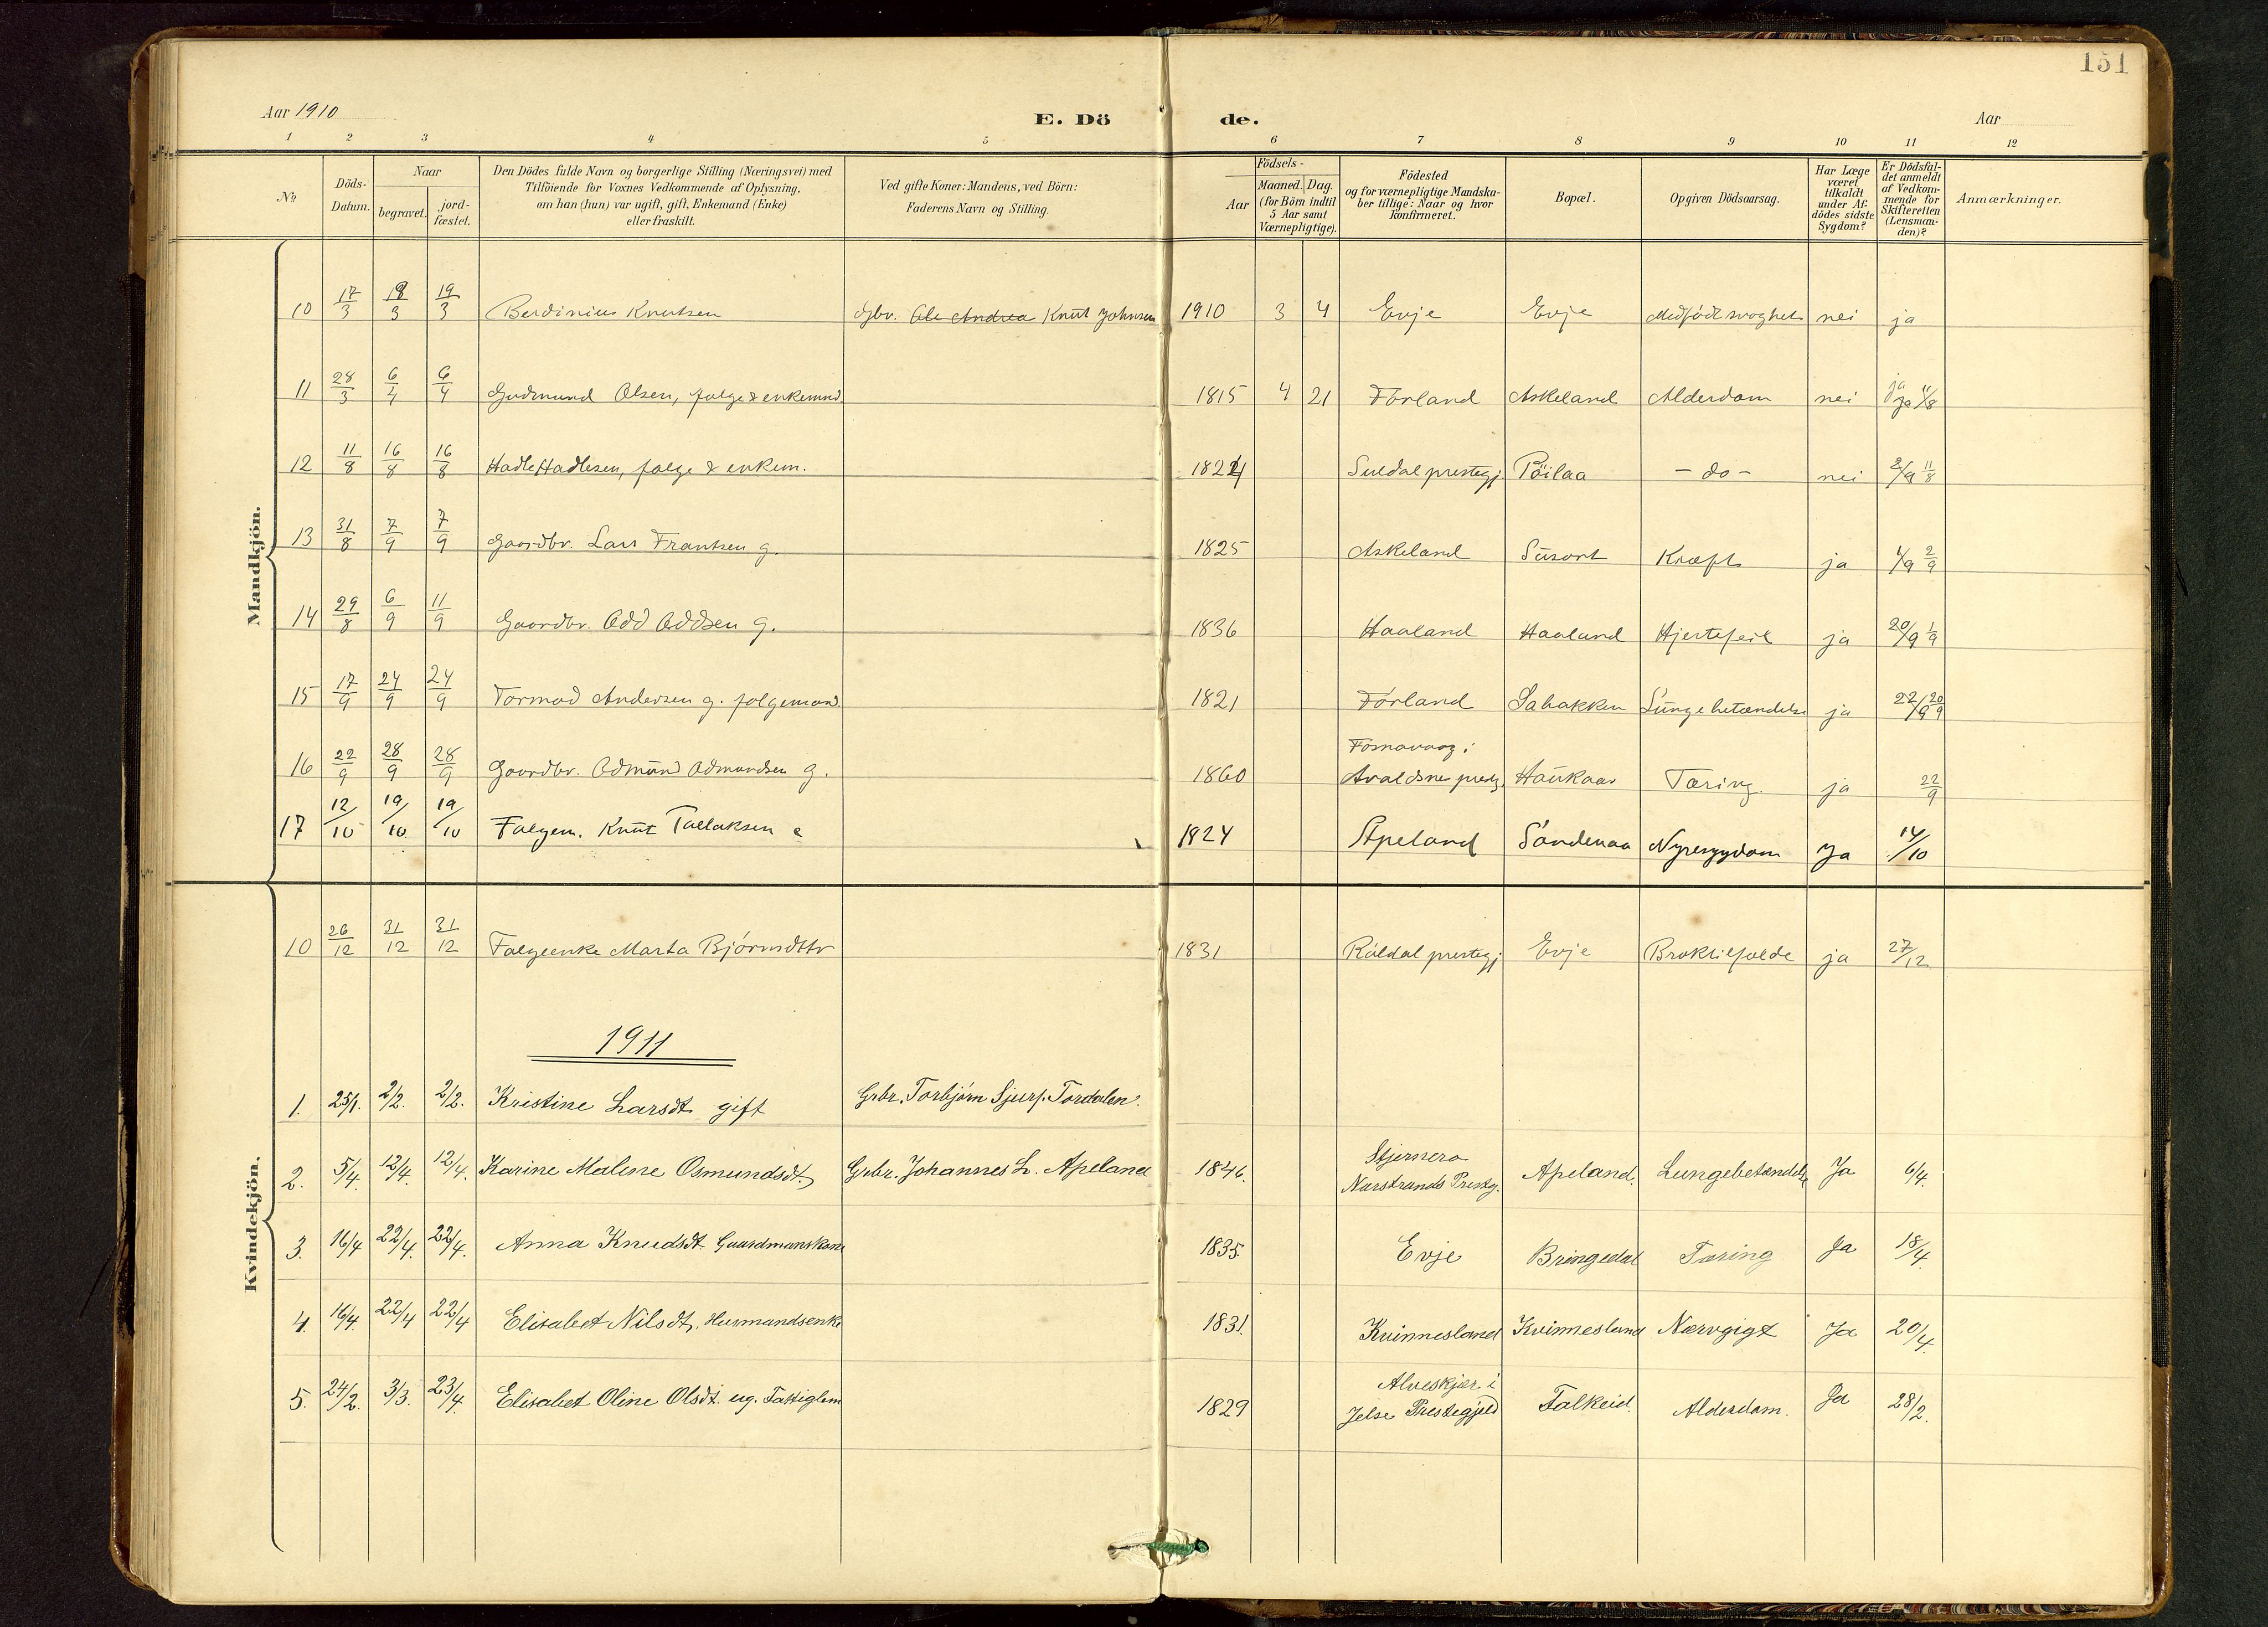 151
Aar 1910
E. Dö de.
Aar
1 2 3 4 5 6 7 8 9 10 11 12
№
Döds-Datum.
Naar
begravet.
jord-fæstet.
Den Dödes fulde Navn og borgerlige Stilling (Næringsvei) med
Tilföiende for Voxnes Vedkommende af Oplysning,
om han (hun) var ugift, gift, Enkemand (Enke)
eller fraskilt.
Ved gifte Koner: Mandens, ved Börn:
Faderens Navn og Stilling.
Födsels-
Aar
Maaned. Dag.
(for Börn indtil
5 Aar samt
Værnepligtige).
Födested
og for værnepligtige Mandska-
ber tillige: Naar og hvor
konfirmeret.
Bopæl.
Opgiven Dödsaarsag.
Har Læge
været
tilkaldt
under Af-
dödes sidste
Sygdom?
Er Dödsfal-
det anmeldt
af Vedkom-
mende for
Skifteretten
(Lensman-
den)?
Anmærkninger.
Mandkjön.
10 17/3 18/3 19/3 Berdinius Knutsen Gbr. Ole Andrea Knut Johnsen 1910 3 4 Evje Evje Medfödt svaghet nei ja
11 28/3 6/4 6/4 Gudmund Olsen, folge & enkemnd 1815 4 21 Förland Askeland Alderdom nei ja
12 11/8 16/8 16/8 Hadle Hadlesen, folge & enkem. 1824 Suldal prestegj. Pöilaa - do - nei 2/9 11/8
13 31/8 7/9 7/9 Gaardbr. Lars Frantsen g. 1825 Askeland Susort Kræft ja 4/9 2/9
14 29/8 6/9 11/9 Gaardbr. Odd Oddsen g. 1836 Haaland Haaland Hjertefeil ja 20/9 1/9
15 17/9 24/9 24/9 Tormod Andersen g. folgemand 1821 Förland Labakken Lungebetændelse ja 22/9 20/9
16 22/9 28/9 28/9 Gaardbr. Odmund Odmundsen g. 1860 Fosnavaag i Avaldsnes prestg. Haukaas Tæring. ja 22/9
17 12/10 19/10 19/10 Folgem. Knut Tallaksen e 1824 Apeland Sandenaa Nyresygdom Ja 14/10
Kvindekjön.
10 26/12 31/12 31/12 Folgeenke Marta Björnsdttr 1831 Röldal prestegj Evje Broktilfælde ja 27/12
1911
1. 25/1. 2/2. 2/2. Kristine Larsdt. gift Grbr. Torbjörn Sjurs. Tordalen.
2. 5/4. 12/4. 12/4. Karine Malene Osmundsdt. Grbr. Johannes L. Apeland 1846. Stjernerø Nærstrands Prestg. Apeland. Lungebetændelse Ja 6/4.
3. 16/4 22/4. 22/4. Anna Knudsdt. Gaardmanskone 1835. Evje Bringedal Tæring Ja 18/4.
4. 16/4. 22/4 22/4 Elisabet Nilsdt. Husmandsenke 1831. Kvinnesland Kvinnesland Nervgigt Ja 20/4.
5. 24/2. 3/3. 23/4. Elisabet Oline Olsdt. ug. Fattiglem 1829 Alveskjær i Jelse Prestegjeld Falkeid. Alderdom. Ja 28/2.